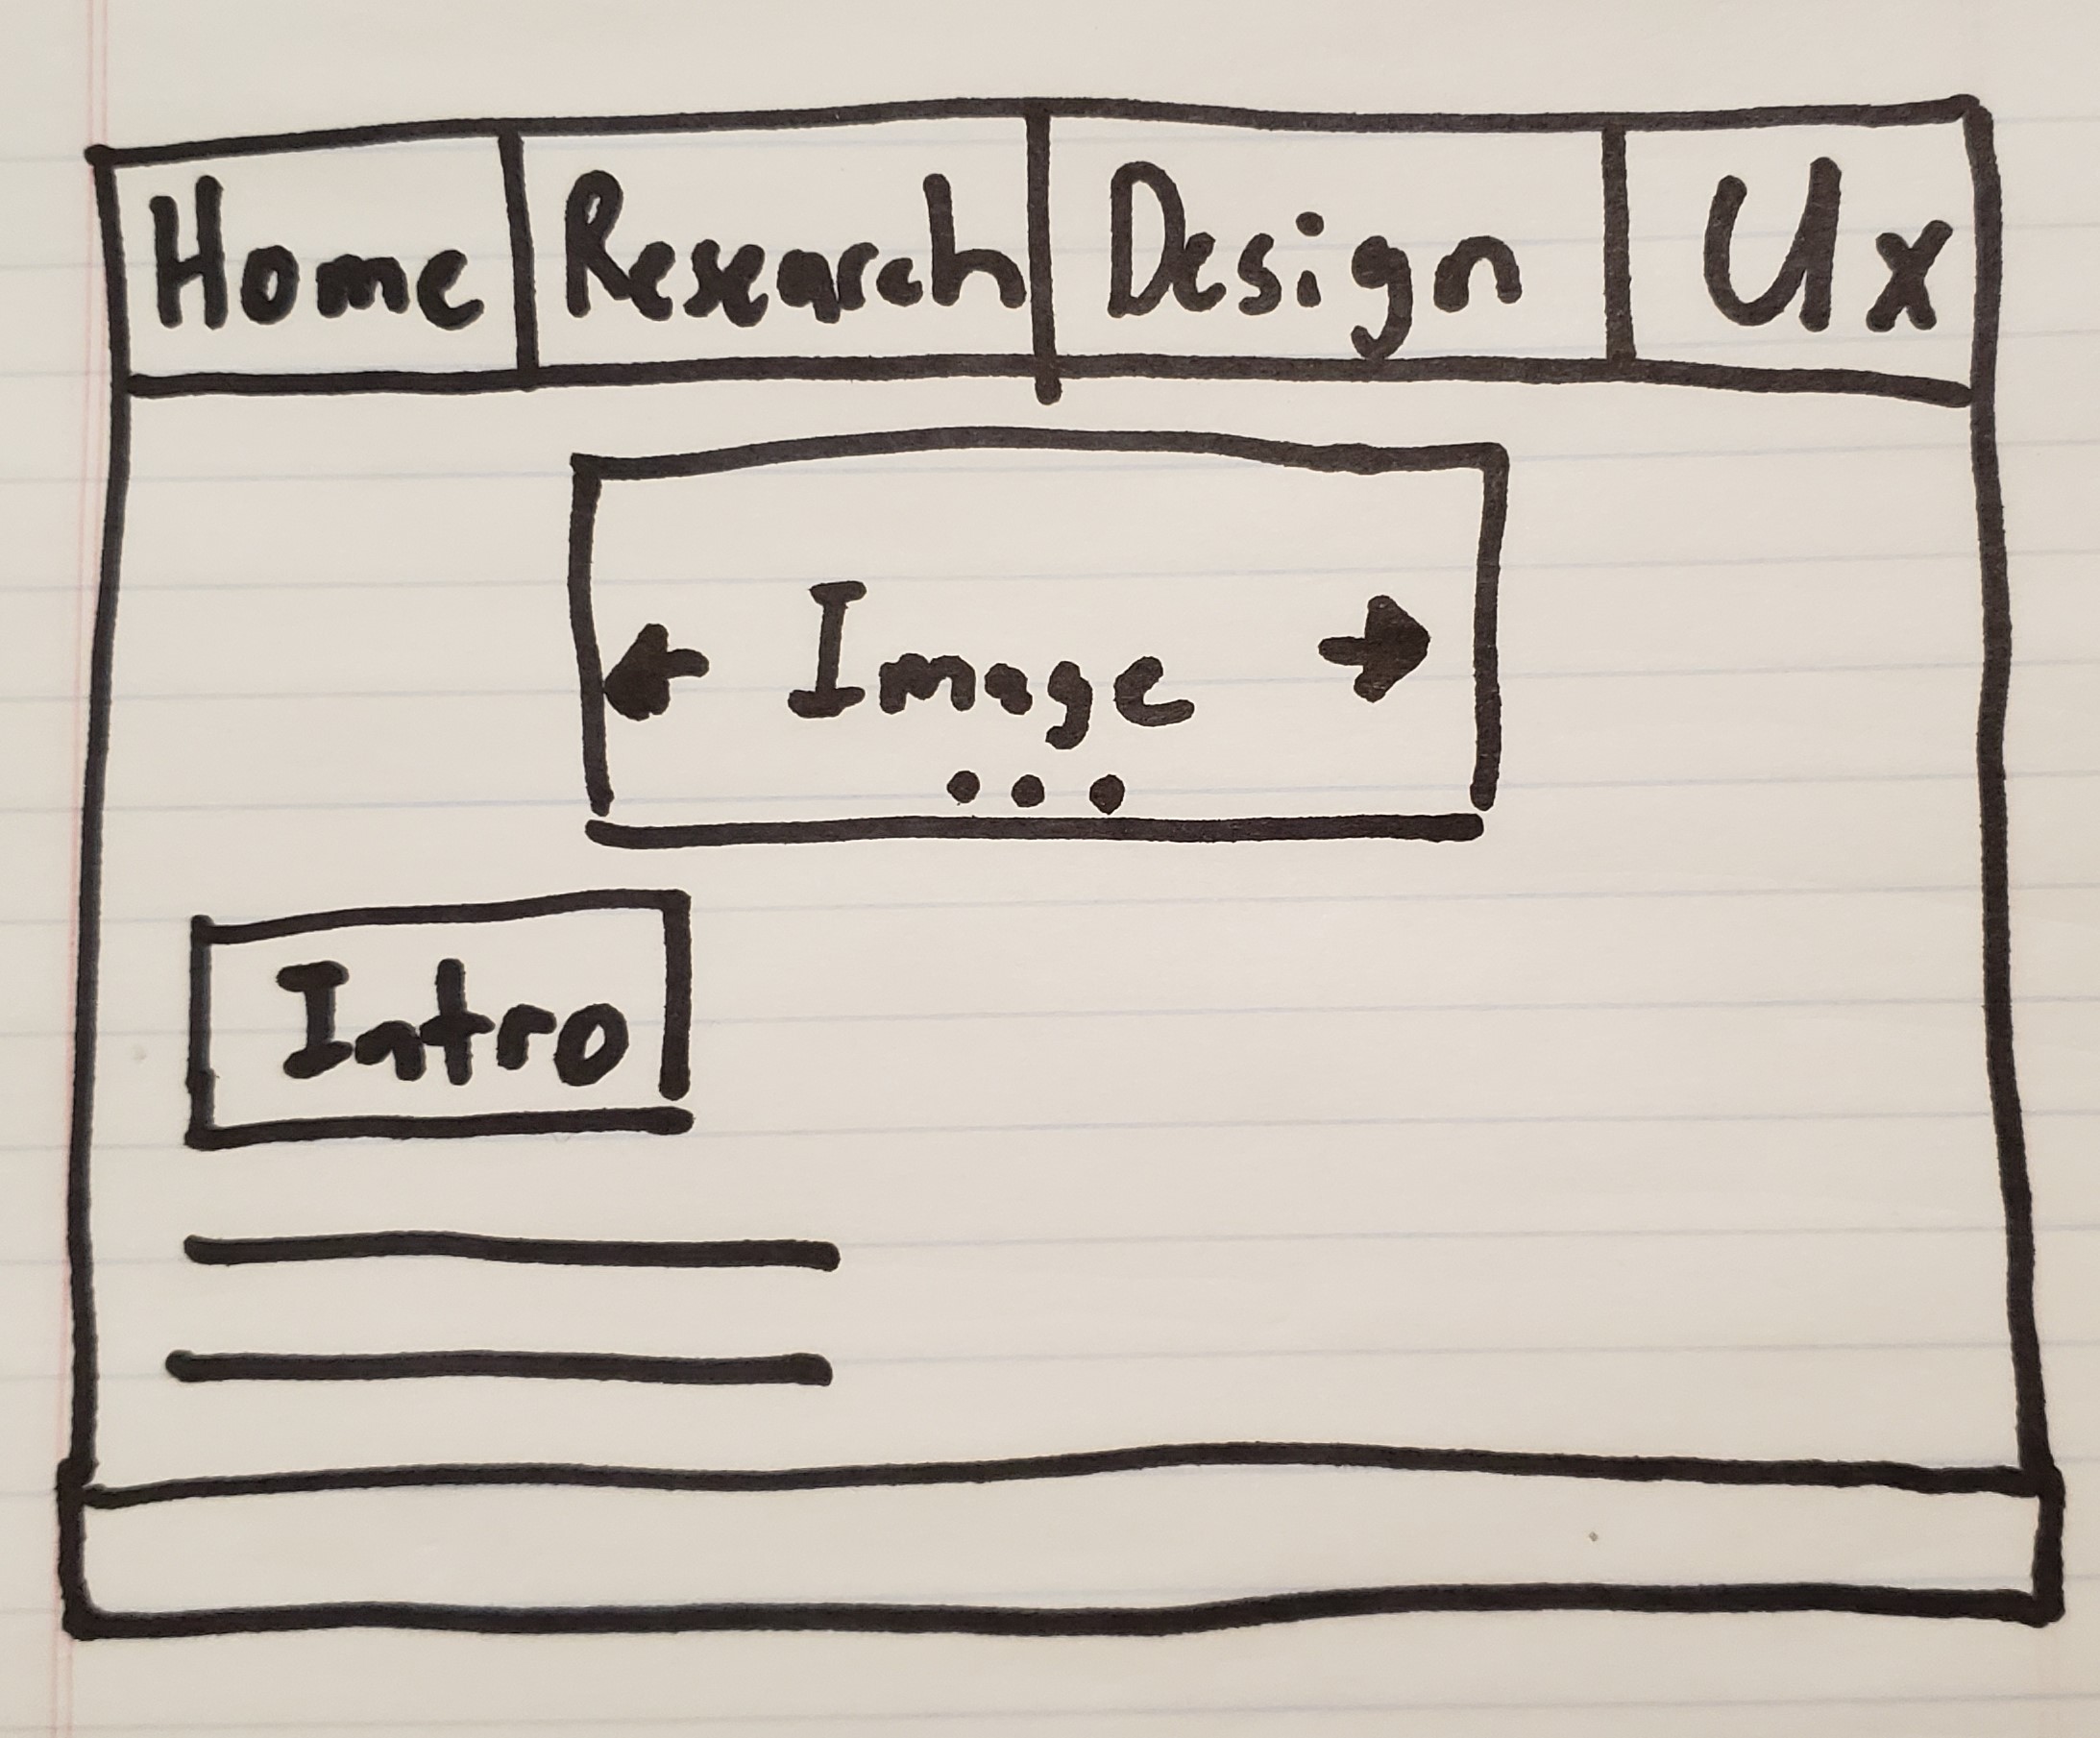 Home Research Design Ux
Image
Intro